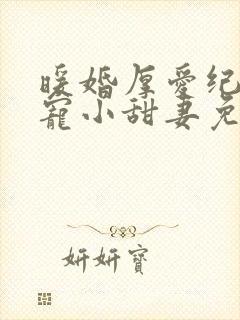 暖婚厚爱纪
宠小甜妻免
妍妍寶